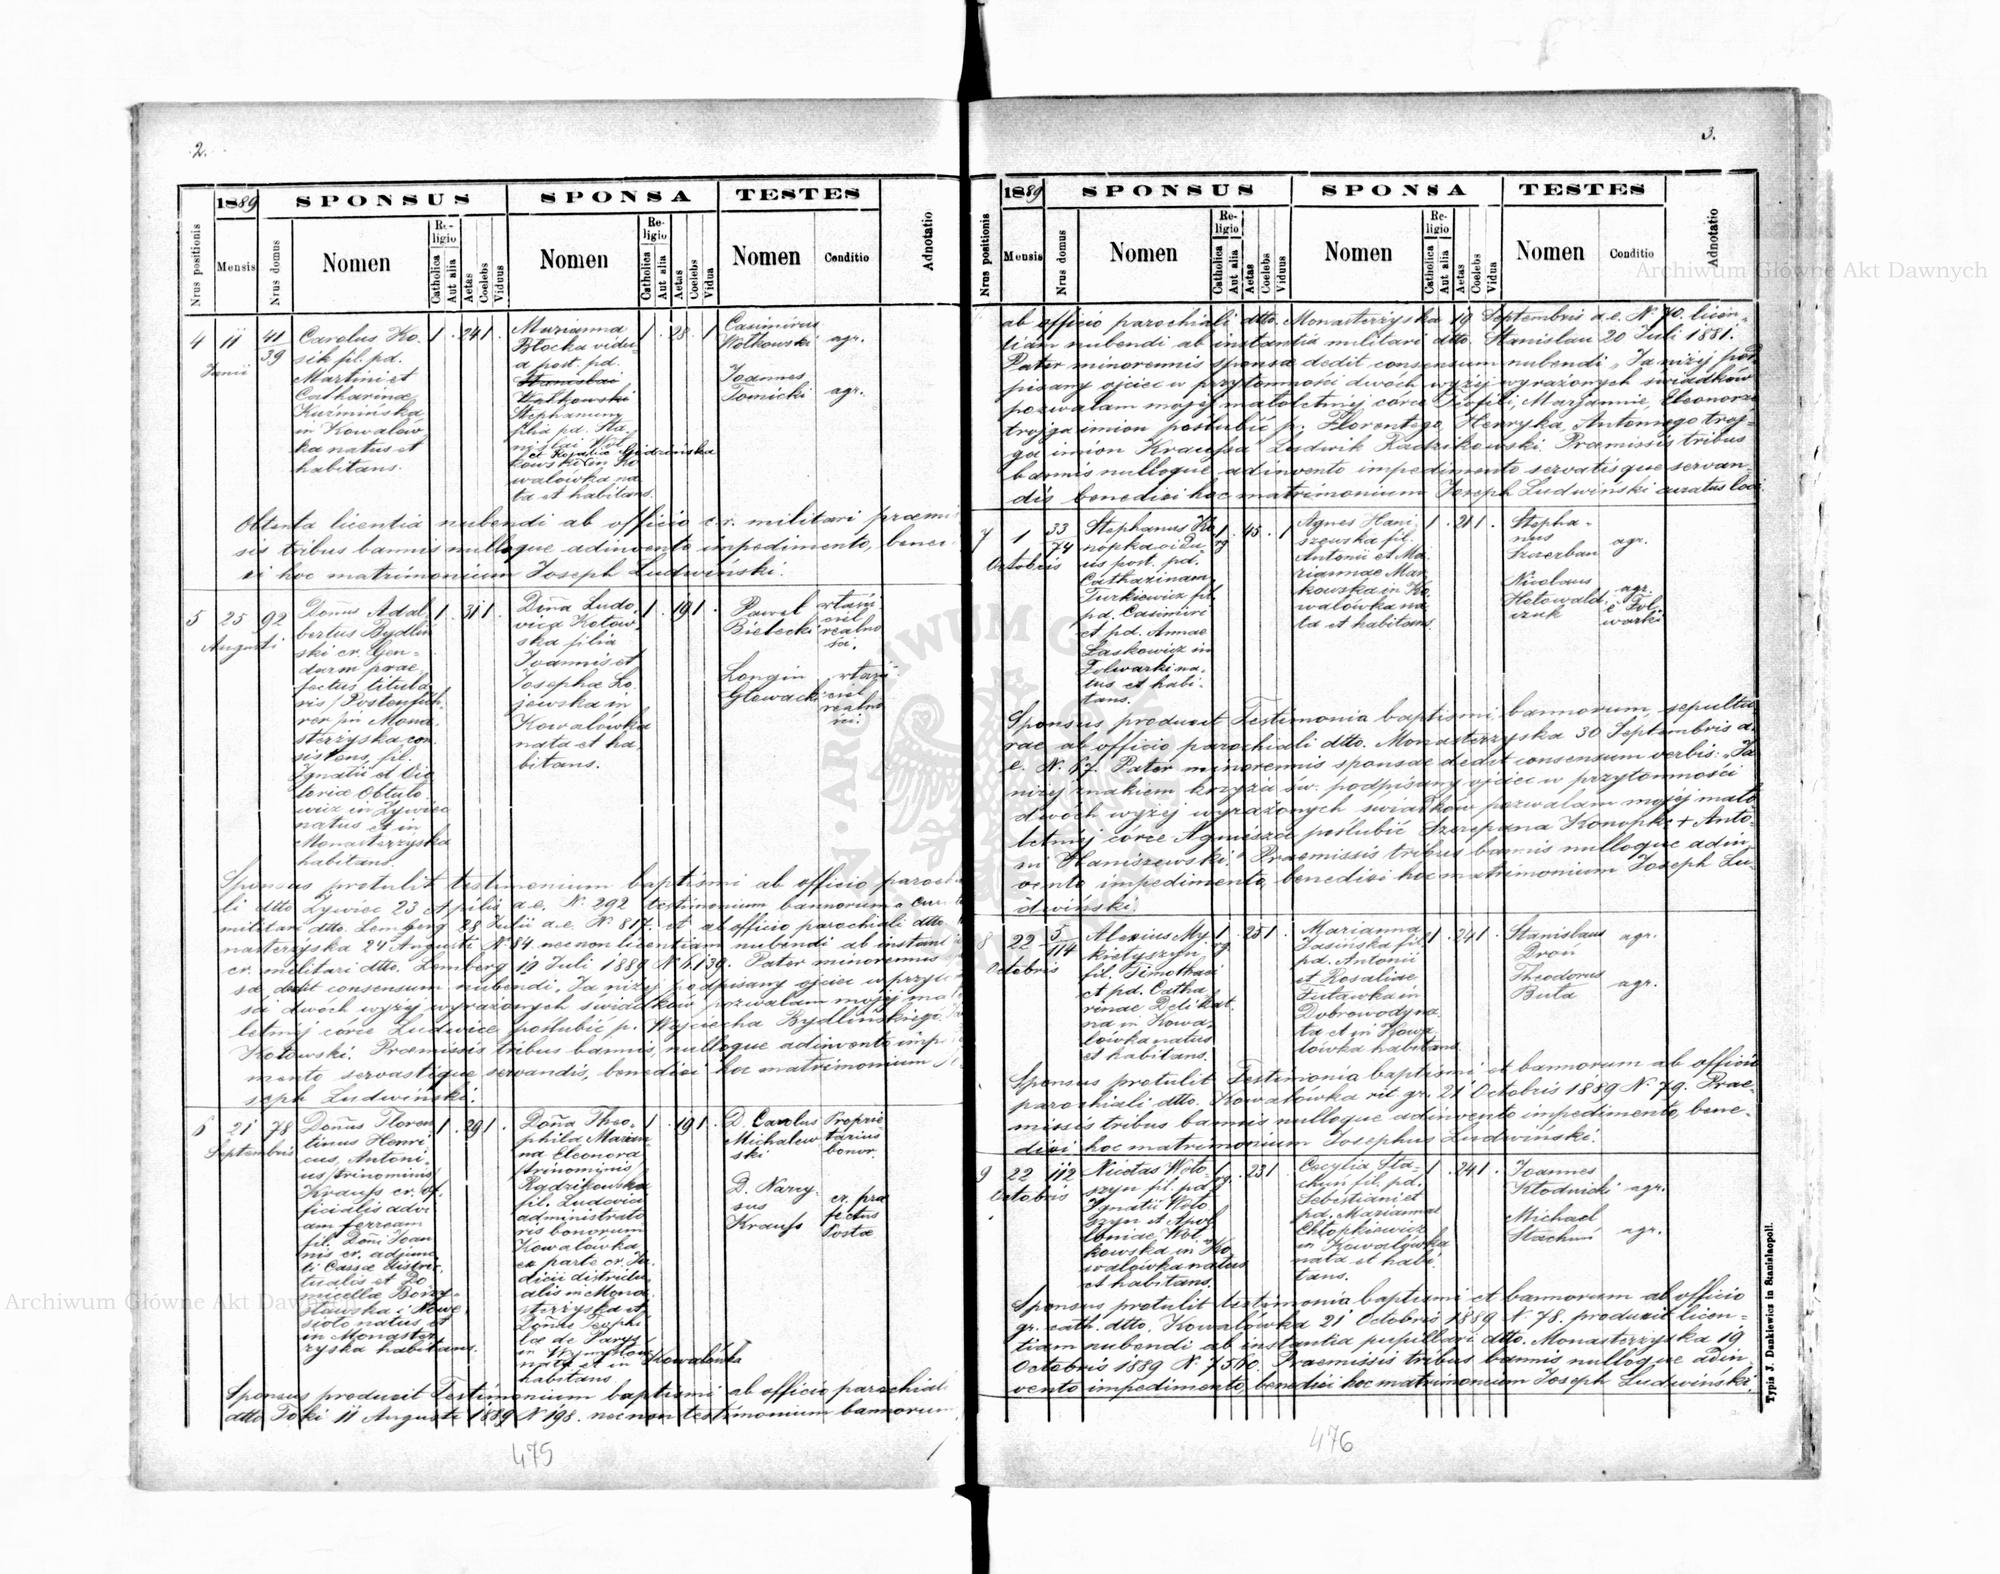 2.
1889
SPONSUS
SPONSA
TESTES
Nrus positionis
Mensis
Nrus domus
Nomen
Religio
Catholica
Aut alia
Aetas
Coelebs
Viduus
Nomen
Religio
Catholica
Aut alia
Aetas
Coelebs
Vidua
Nomen
Conditio
Adnotatio
4
11
Junii
41
39
Carolus Ko
sik fil. pd.
Martini et
Catharinae
Kuzmińska
in Kowalów
ka natus et
habitans.
1 . 24 1 .
Marianna
Błocka vidu
a post. pd.
Stanislai
Wołkowski
Stephanum
filia pd. Sta
nislai Woł
et Rosalie Gidzińska
kowski in Ko
walówka na
ta et habitans.
1 . 28 . 1
Casimirus
Wołkowski agr.
Joannes
Tomicki agr.
Obtenta licentia nubendi ab officio c.r. militari praemis
sis tribus bannis nulloque adinvento impedimento, benedi
xi hoc matrimonium Joseph Ludwiński.
5
25
Augusti
92
Dom̃us Adal
bertus Bydliń
ski cr. Gen
darm prae
fectus titula
ris / Postenfüh
rer / in Mona
sterzyska con
sistens, fil.
Ignatii et Vic
toriae Obtulo
wicz in Żywiec
natus et in
Monasterzyska
habitans.
1 . 31 1 .
Dom̃a Ludo
vica Kotow
ska filia
Joannis et
Josepha Ło
jewska in
Kowalówka
nata et ha
bitans.
1 . 19 1 .
Paweł
Bielecki
właści
ciel
realno
ści.
Longin
Głowacki
właści
ciel
realno
ści.
Sponsus protulit testimonium baptismi ab officio parochia
li dtto Żywiec 23 Aprilis a.e. N. 292 testimonium bannorum a cur
militari dtto. Lemberg 28 Julii a.e. N. 817. et ab officio parochiali dtto.
nasterzyska 24 Augusti N 84 nec non licentiam nubendi ab instant
cr. militari dtto. Lemberg 19 Juli 1889 N 6139. Pater minorennis
sa dedit consensum nubendi „Ja niżej podpisany ojciec w przyto
ści dwóch wyżej wyrażonych świadków pozwalam mojej ma
letniej córce Ludwice poślubić p. Wojciecha Bydlińskiego.
Kotowski. Praemissis tribus bannis, nulloque adinvento impe
mento servatisque servandis, benedixi hoc matrimonium Jo
seph Ludwiński.
6
21
Septembris
78
Dom̃us Floren
tinus Henri
cus, Antoni
us / trinominis /
Krauss cr. of
ficialis ad vi
am ferream
fil. Dom̃i Joan
nis cr. adjunc
ti Cassae distric
tualis et Do
micellae Borzy
sławska i Nowe
sioło natus, et
in Monaster
zyska habitans.
1 . 29 1 .
Dom̃a Theo
phila Marian
na Eleonora
/ trinominis /
Radzikowska
fil. Ludovici
administrato
ris bonorum
Kowalówka
ex parte cr. Ju
dicii districtu
alis in Mona
sterzyska et
Dom̃ae Teophi
lae de Parys
nata et in Kowalówka
habitans
1 . 19 1 .
D. Carolus
Michalew
ski
Proprie
tarius
bonor.
D. Narcy
sus
Krauss
cr. prae
fectus
Posta
Sponsus produxit Testimonium baptismi ab officio parochiali
dtto Toki 11 Augusti 1889 N 198. nec non testimonium bannorum
475
3.
1889
SPONSUS
SPONSA
TESTES
Nrus positionis
Mensis
Nrus domus
Nomen
Religio
Catholica
Aut alia
Aetas
Coelebs
Viduus
Nomen
Religio
Catholica
Aut alia
Aetas
Coelebs
Vidua
Nomen
Conditio
Adnotatio
ab officio parochiali dtto. Monasterzyska 19 Septembris a.e. N 70. licen
tiam nubendi ab instantia militari dtto. Stanislau 20 Juli 1881.
Pater minorennis sponsae dedit consensum nubendi „Ja niżej pod
pisany ojciec w przytomności dwóch wyżej wyrażonych świadków
pozwalam mojej małoletniej córce Teofili, Marjannie, Eleonorze
trojga imion poślubić p. Florentego, Henryka, Antoniego troj
ga imion Kraussa Ludwik Radzikowski. Praemissis tribus
bannis nulloque adinvento impedimento servatisque servan
dis benedixi hoc matrimonium Joseph Ludwiński curatus loci.
7
1
Octobris
33
74
Stephanus Ko
nopka vidu
us post. pd.
Catharinam
Turkiewicz fil.
pd. Casimiri
et pd. Annae
Laskowicz in
Folwarki na
tus et habi
tans.
1
rg. . 45 . 1
Agnes Hani
szewska fil.
Antonii et Ma
riannae Mar
kowska in Ko
walówka na
ta et habitans.
1 . 21 1 .
Stepha
nus
Szczerban agr.
Nicolaus
Hotowald
czuk
agr.
e Fol
warki
Sponsus produxit Testimonia baptismi, bannorum, sepultu
rae ab officio parochiali dtto. Monasterzyska 30 Septembris a.
e. N. 67. Pater minorennis sponsae dedit consensum verbis: „Ja
niżej znakiem krzyża św. podpisany ojciec w przytomności
dwóch wyżej wyrażonych świadków pozwalam mojej mało
letniej córce Agnieszce poślubić Szczepana Konopkę + Anto
ni Haniszewski. Praemissis tribus bannis nulloque adin
vento impedimento, benedixi hoc matrimonium Joseph Lu
dwiński.
8
22
Octobris
5
114
Alexius My
kietyszyn
fil. Timothaei
et pd. Catha
rinae Delikat
na in Kowa
lówka natus
et habitans.
1
rg. . 25 1 .
Marianna
Jasińska fil.
pd. Antonii
et Rosaliae
Futawka in
Dobrowody na
ta et in Kowa
lówka habitans.
1 . 24 1 .
Stanislaus
Droń agr.
Theodorus
Buta agr.
Sponsus protulit Testimonia baptismi et bannorum ab officio
parochiali dtto. Kowalówka rit gr. 21 Octobris 1889 N 79. Prae
missis tribus bannis nulloque adinvento impedimento, bene
dixi hoc matrimonium Josephus Ludwiński.
9
22
Octobris
112
Nicetas Woło
szyn fil. pd.
Ignatii Woło
szyn et Apol
loniae Woł
kowska in Ko
walówka natus
et habitans.
1
rg. . 23 1 .
Cecylia Sta
chun fil. pd.
Sebestiani et
pd. Mariannae
Chłopkiewicz
in Kowalówka
nata et habi
tans.
1 . 24 1 .
Joannes
Kłodnicki agr.
Michael
Stachun agr.
Sponsus protulit testimonia baptismi et bannorum ab officio
gr. cath. dtto. Kowalówka 21 Octobris 1889 N. 78. produxit licen
tiam nubendi ab instantia pupillari dtto. Monasterzyska 19
Octobris 1889 N. 7560. Praemissis tribus bannis nulloque adin
vento impedimento, benedixi hoc matrimonium Joseph Ludwiński.
476
Typis J. Dankiewicz in Stanislaopoli.
Archiwum Główne Akt Dawnych
Archiwum Główne Akt Dawnych